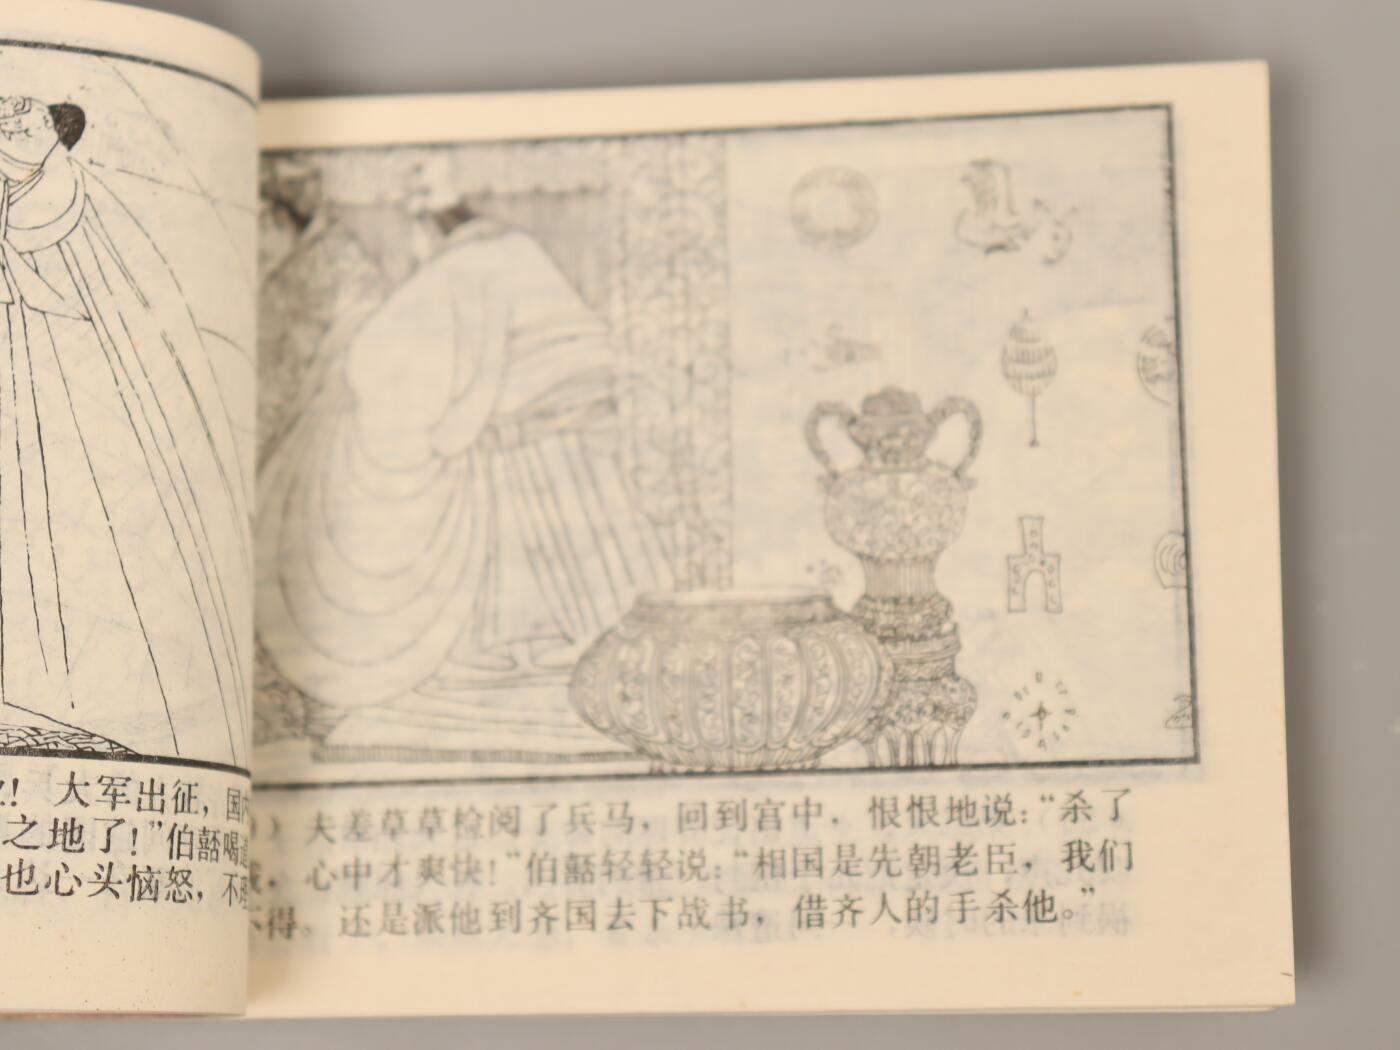 ！大军出征，国内
之地了！”伯嚭喝道
也心头恼怒，不理
）夫差草草检阅了兵马，回到宫中，恨恨地说：“杀了
，心中才爽快！”伯嚭轻轻说：“相国是先朝老臣，我们
不得。还是派他到齐国去下战书，借齐人的手杀他。”